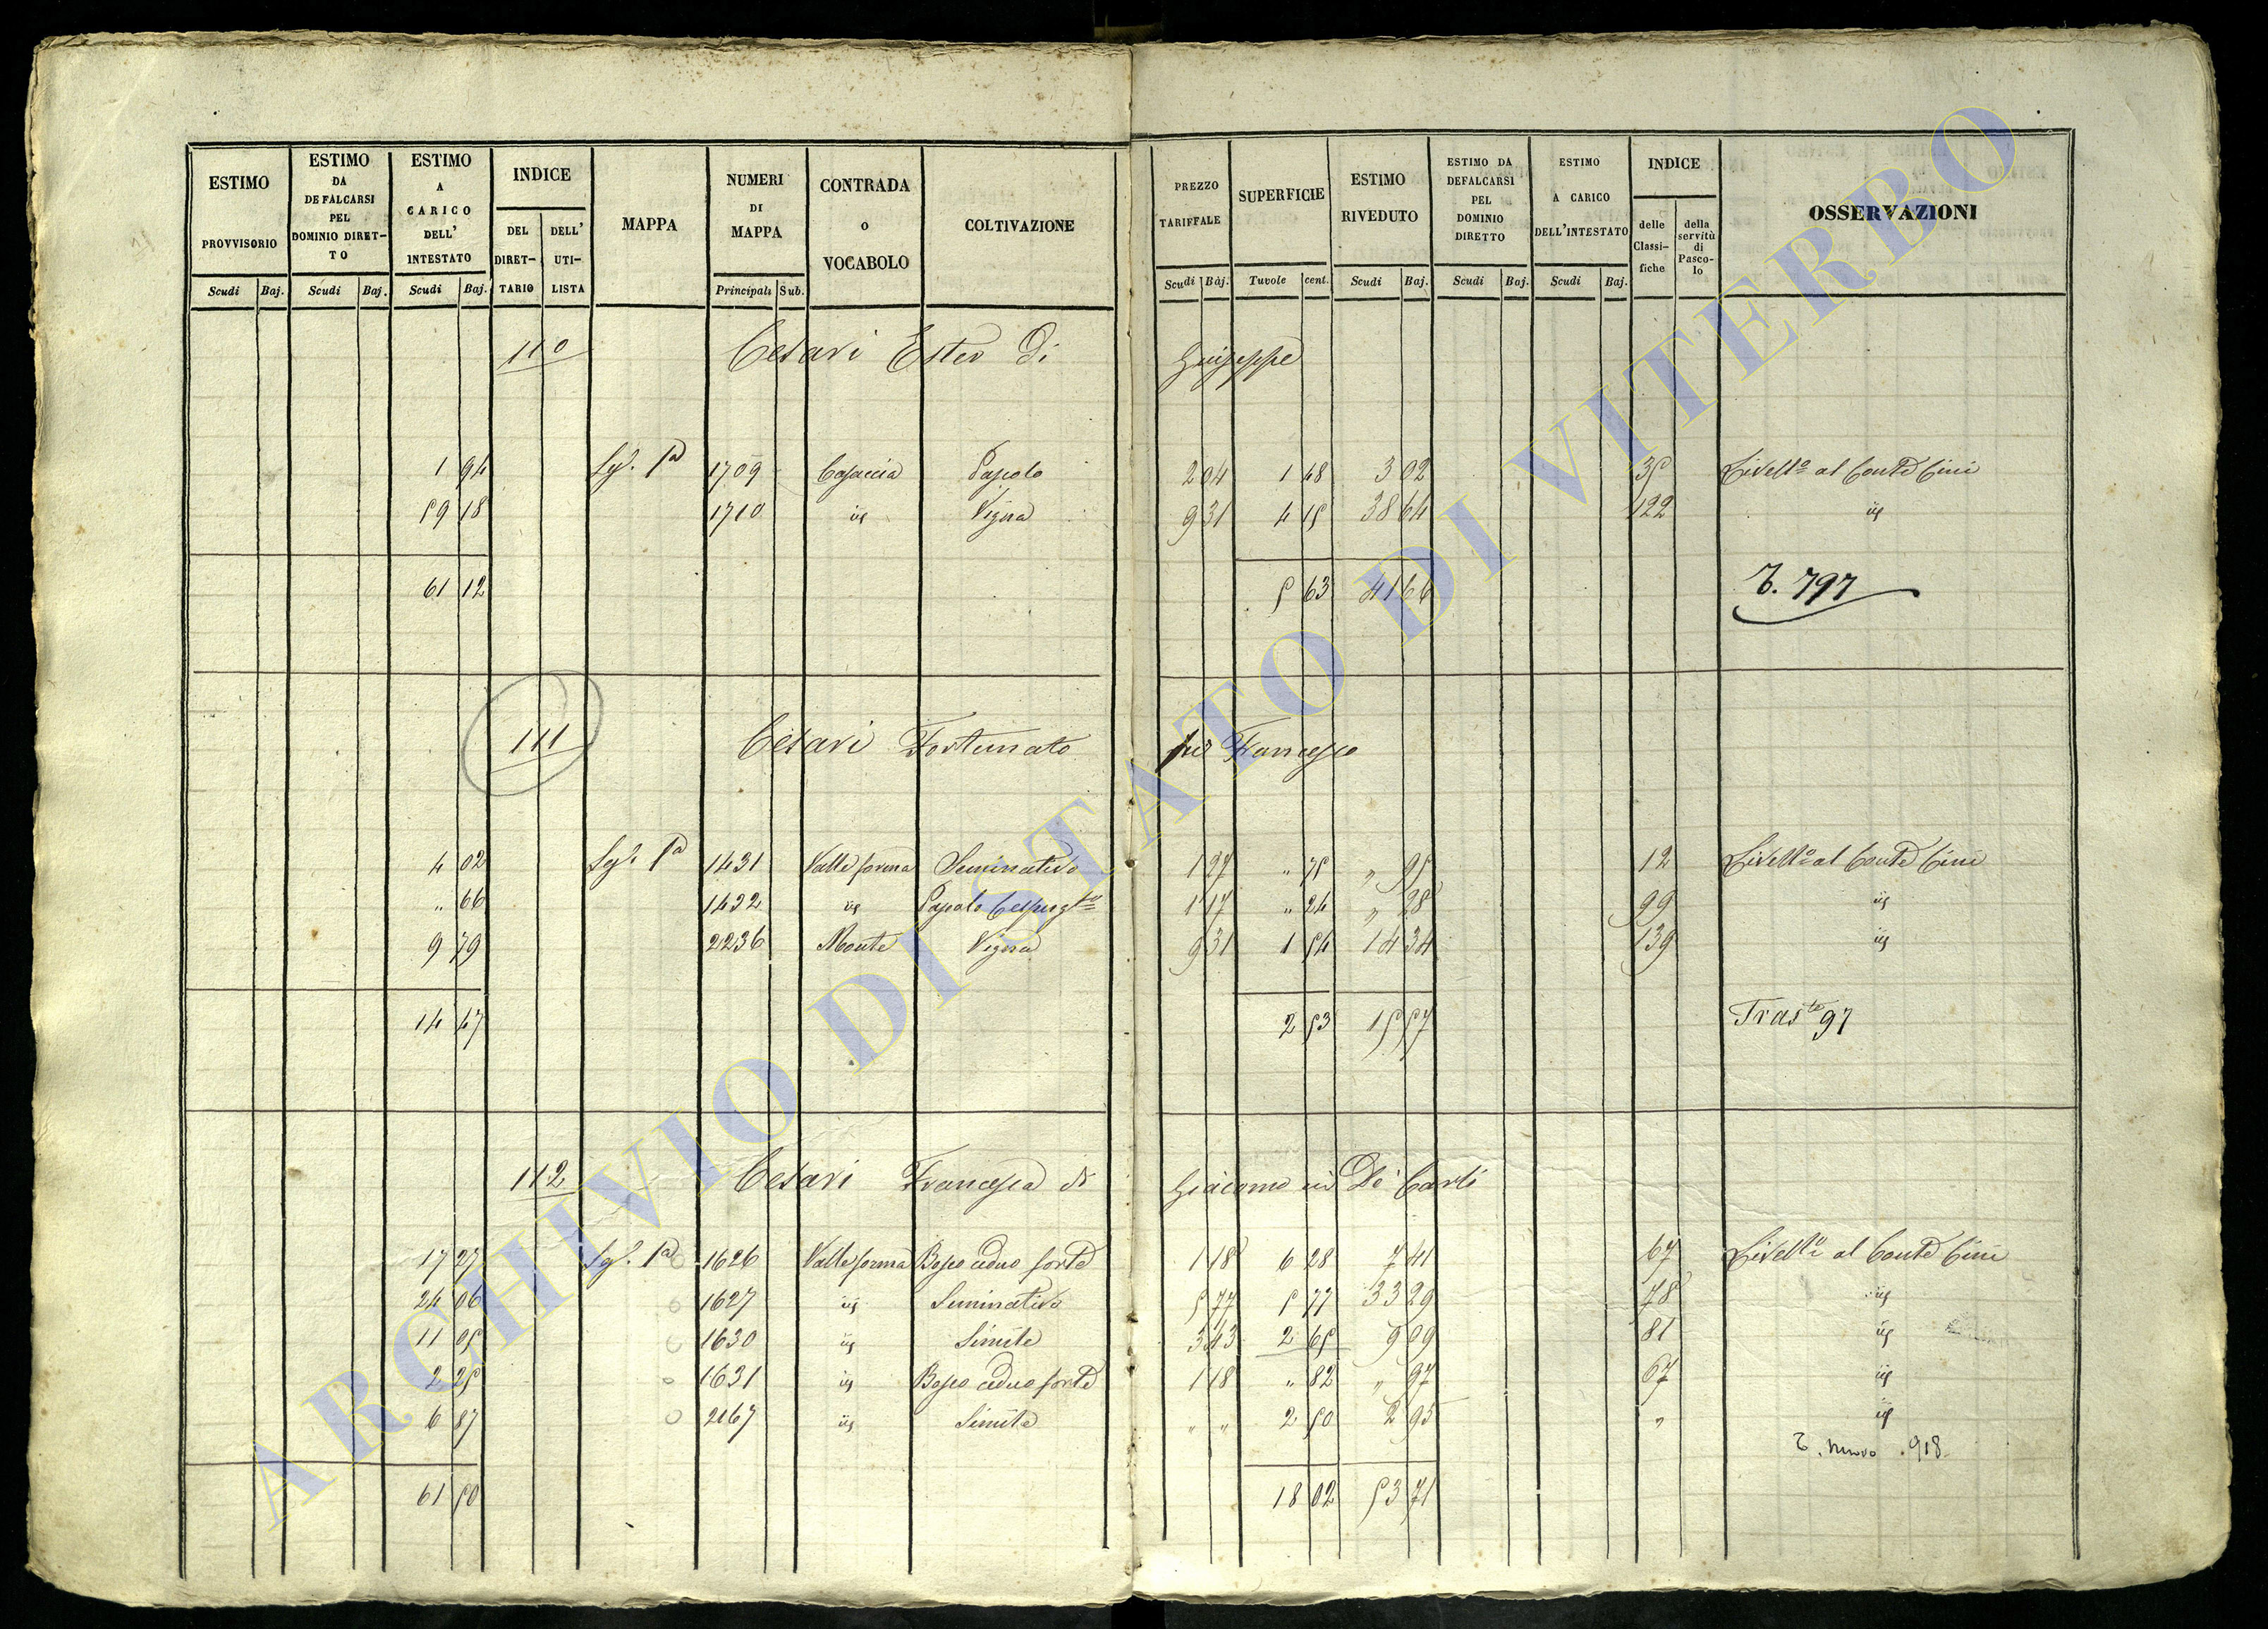 ESTIMO PROVVISORIO | ESTIMO DA DEFALCARSI PEL DOMINIO DIRET-TO | ESTIMO A CARICO DELL' INTESTATO | INDICE DEL DIRET-TARIO | DELL' UTI-LISTA | MAPPA | NUMERI DI MAPPA | CONTRADA o VOCABOLO | COLTIVAZIONE | PREZZO TARIFFALE | SUPERFICIE | ESTIMO RIVEDUTO | ESTIMO DA DEFALCARSI PEL DOMINIO DIRETTO | ESTIMO A CARICO DELL'INTESTATO | INDICE delle Classi-fiche | della servitù di Pasco-lo | OSSERVAZIONI
Scudi Baj. Scudi Baj. Scudi Baj. Principali Sub. Scudi Baj. Tuvole cent. Scudi Baj. Scudi Baj. Scudi Baj.
110 Cesari Ester di Giuseppe
1 94 1709 Casaccia Pascolo 2 04 1 48 3 02 35 Livell.o al Conte Cini
59 18 1710 id Vigna 9 31 4 15 38 64 122 id
61 12 5 63 41 66 T. 797
111 Cesari Fortunato fu Francesco
4 02 1431 Valle forma Seminativo 1 27 " 75 " 95 12 Livell.o al Conte Cini
" 66 1432 id Pascolo Cespugto 1 17 " 24 " 28 99 id
9 79 2236 Monte Vigna 9 31 1 54 14 34 139 id
14 47 2 53 15 57 Trasto 97
112 Cesari Francesca di Giacomo in De Carli
17 27 1626 Valle forma Bosco ceduo forte 1 18 6 28 7 41 67 Livell.o al Conte Cini
24 06 1627 id Seminativo 5 77 5 77 33 29 78 id
11 05 1630 id Simile 3 43 2 65 9 09 81 id
2 25 1631 id Bosco ceduo forte 1 18 " 82 " 97 67 id
6 87 2167 id Simile " " 2 50 2 95 " id
T. nuovo . 918
61 50 18 02 53 71
ARCHIVIO DI STATO DI VITERBO